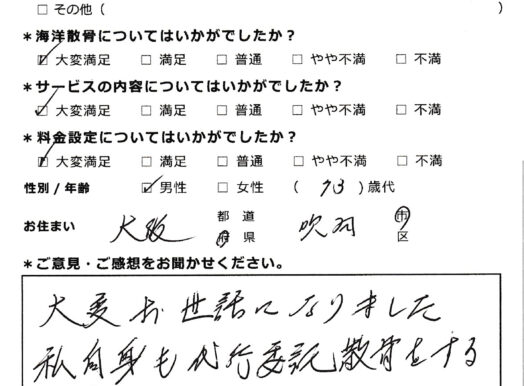 □ その他 ( )
*海洋散骨についてはいかがでしたか?
☑ 大変満足 □ 満足 □ 普通 □ やや不満 □ 不満
*サービスの内容についてはいかがでしたか?
☑ 大変満足 □ 満足 □ 普通 □ やや不満 □ 不満
*料金設定についてはいかがでしたか?
☑ 大変満足 □ 満足 □ 普通 □ やや不満 □ 不満
性別/年齢 ☑ 男性 □ 女性 ( 73 )歳代
お住まい 大阪 都 道 府 県 吹田 市 区
*ご意見・ご感想をお聞かせください。
大変お世話になりました
私自身も代行委託散骨をする